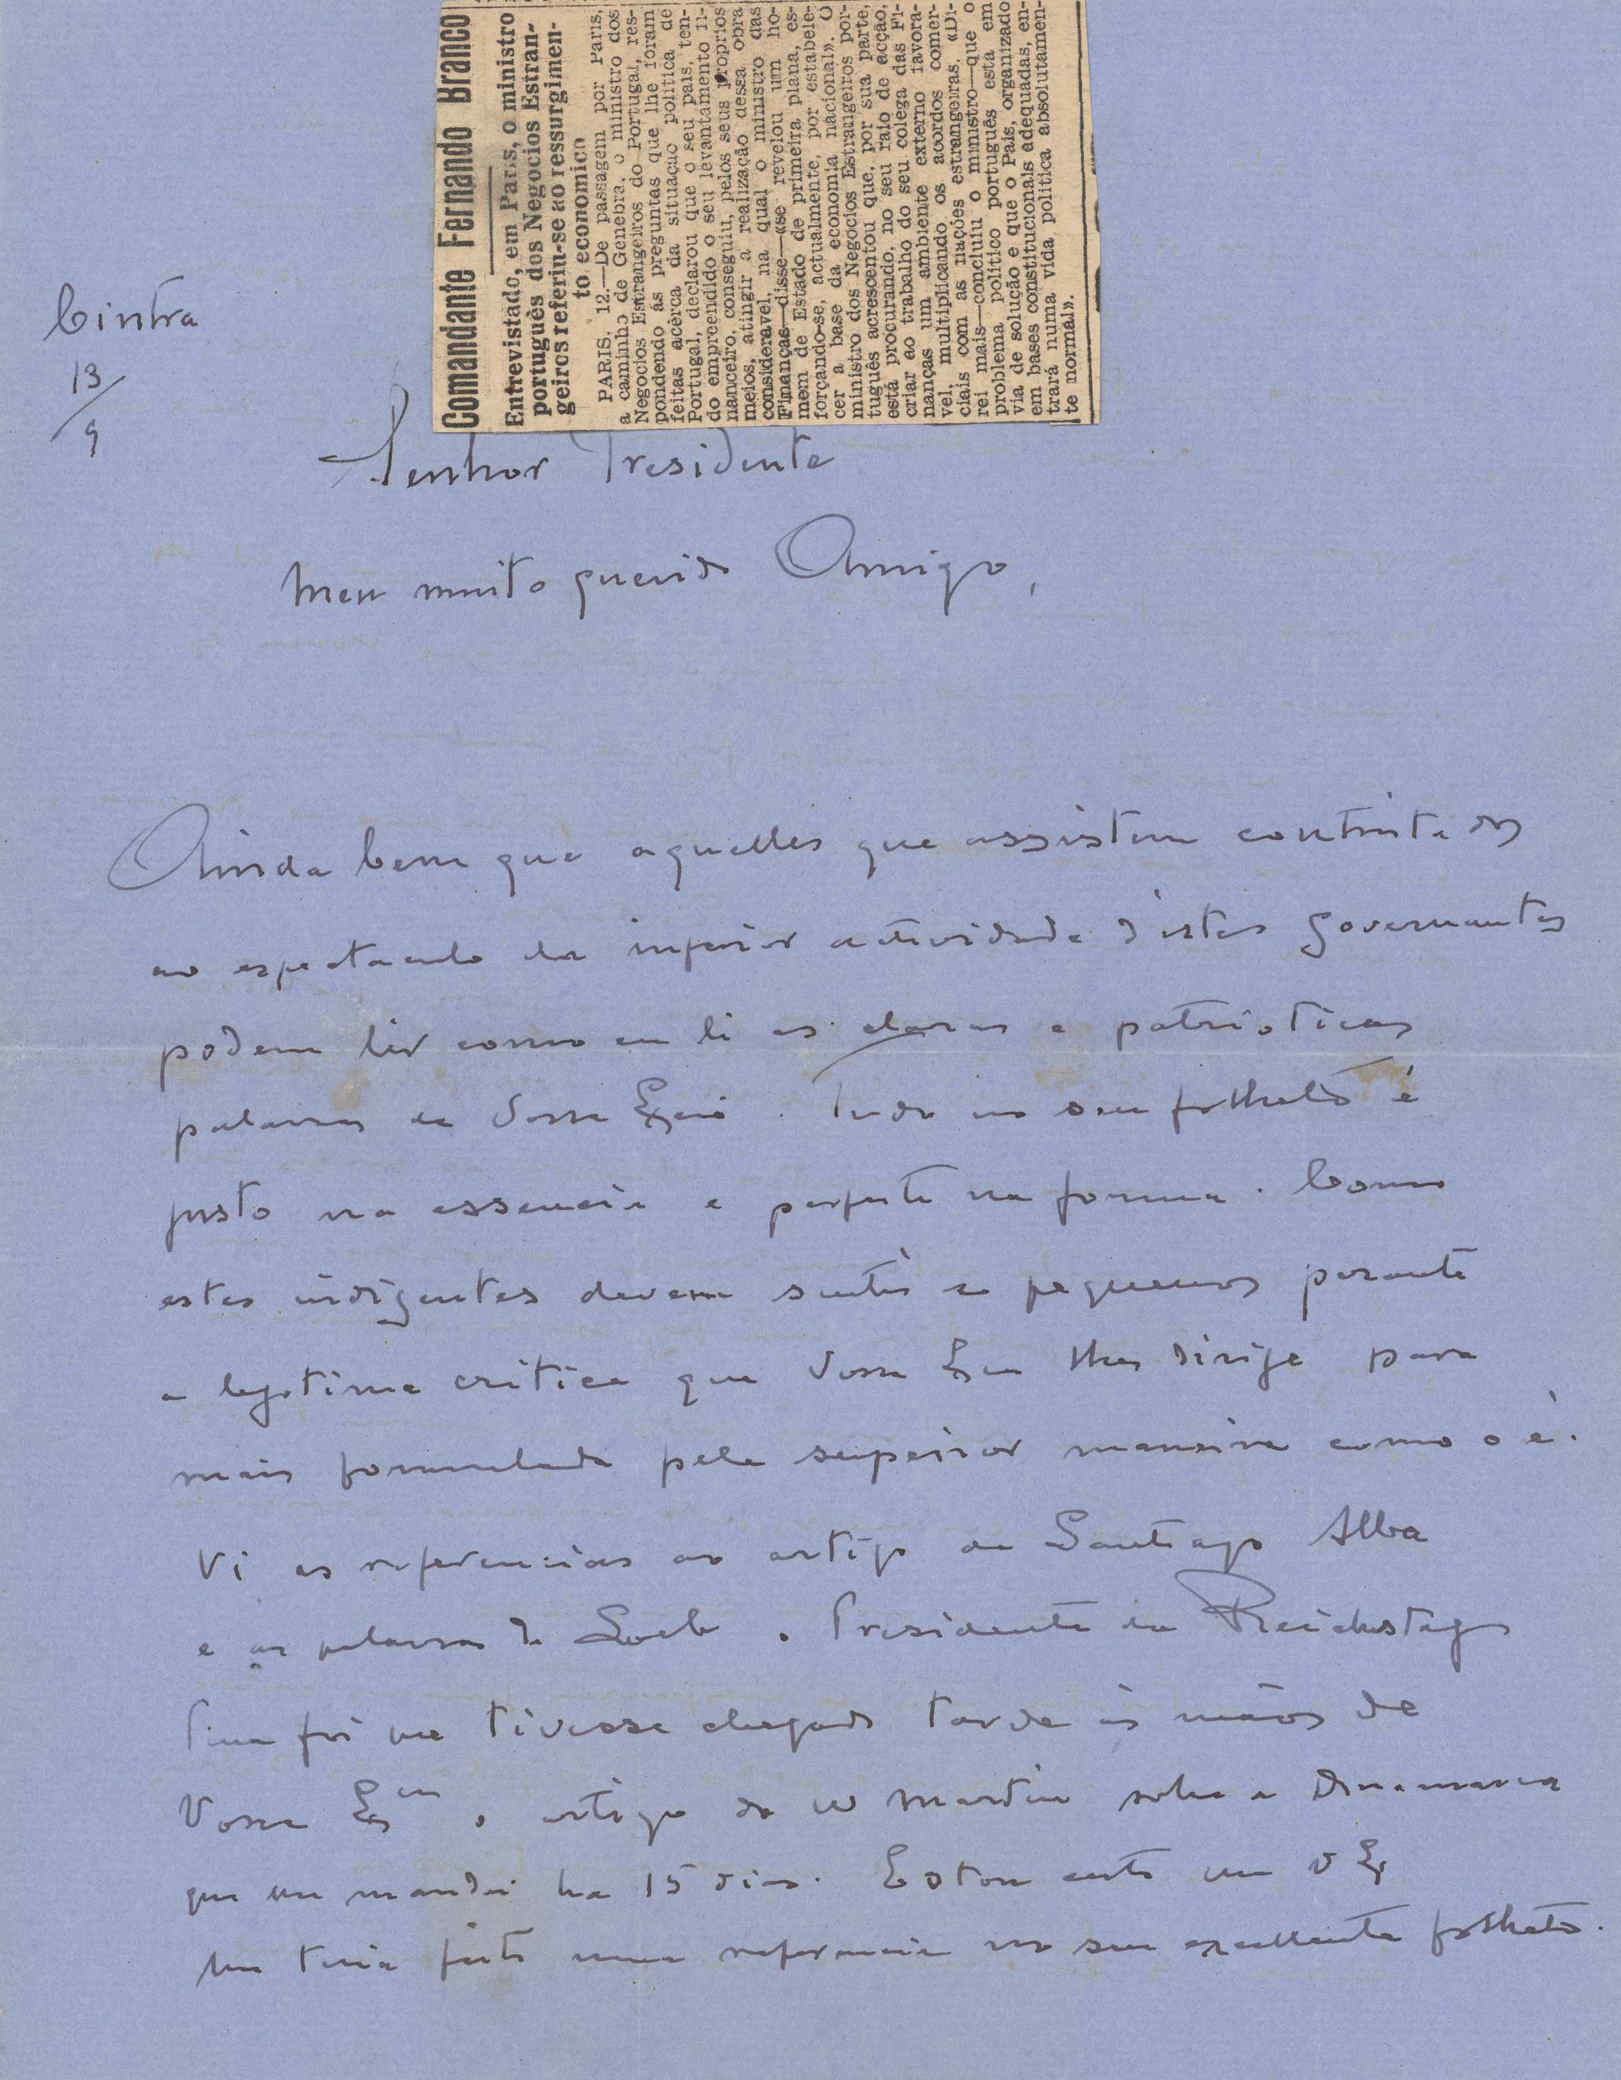 Comandante Fernando Branco
Entrevistado, em Paris, o ministro
português dos Negocios Estran-
geiros referiu-se ao ressurgimen-
to economico
PARIS, 12.—De passagem por Paris,
a caminho de Genebra, o ministro dos
Negocios Estrangeiros do Portugal, res-
pondendo ás preguntas que lhe foram
feitas acêrca da situação politica de
Portugal, declarou que o seu país, ten-
do empreendido o seu levantamento fi-
nanceiro, conseguiu, pelos seus proprios
meios, atingir a realização dessa obra
consideravel, na qual o ministro das
Finanças—disse—«se revelou um ho-
mem de Estado de primeira plana, es-
forçando-se, actualmente, por estabele-
cer a base da economia nacional». O
ministro dos Negocios Estrangeiros por-
tuguês acrescentou que, por sua parte,
está procurando, no seu raio de acção,
criar ao trabalho do seu colega das Fi-
nanças um ambiente externo favora-
vel, multiplicando os acordos comer-
ciais com as nações estrangeiras. «Di-
rei mais—concluiu o ministro—que o
problema politico português está em
via de solução e que o País, organizado
em bases constitucionais adequadas, en-
trará numa vida politica absolutamen-
te normal».
Cintra
13/9
Senhor Presidente
Meu muito querido Amigo,
Ainda bem que aquelles que assistem contristados
ao espectaculo da inferior actividade d'estes governantes
podem lêr como eu li as claras e patrioticas
palavras de Vossa Excia. Tudo no seu folheto é
justo na essencia e perfeito na forma. Como
estes indigentes devem sentir se pequenos perante
a legitima critica que Vossa Exa lhes dirige para
mais formulada pela superior maneira como o é.
Vi as referencias ao artigo de Santiago Alba
e as palavras de Loeb o Presidente do Reichstag
Pena foi que tivesse chegado tarde ás mãos de
Vossa Excia o artigo do W Martin sobre a Dinamarca
que eu mandei ha 15 dias. Estou certo que V Ex
lhe teria feito uma referencia no seu excellente folheto.